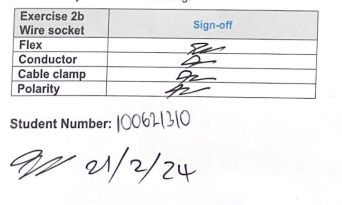 Exercise 2b
Wire socket
Sign-off
Flex
Conductor
Cable clamp
Polarity
Student Number: 100621310
21/2/24